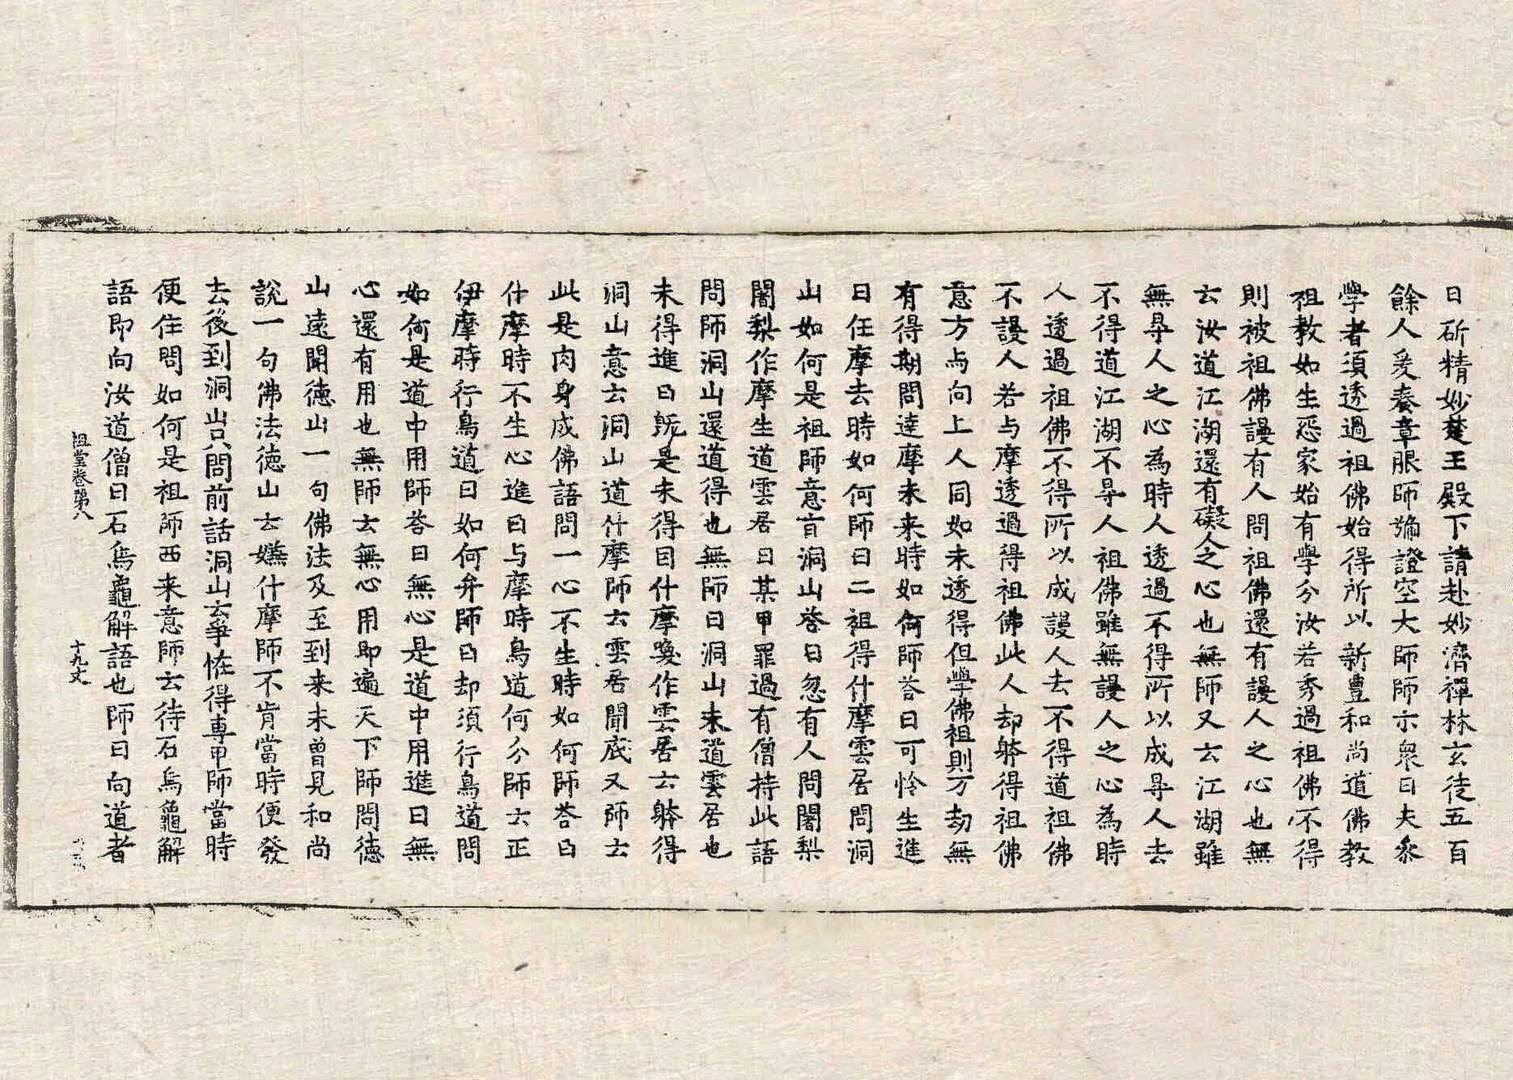 日斫精妙楚王殿下請赴妙濟禪林玄徒五百
餘人爰奏章服師號證空大師師示衆曰夫叅
學者須透過祖佛始得所以新豊和尚道佛教
祖教如生怨家始有學分汝若秀過祖佛不得
則被祖佛謾有人問祖佛還有謾人之心也無
云汝道江湖還有礙人之心也無師又云江湖雖
無㝵人之心為時人透過不得所以成㝵人去
不得道江湖不㝵人祖佛雖無謾人之心為時
人透過祖佛不得所以成謾人去不得道祖佛
不謾人若与摩透過得祖佛此人却躰得祖佛
意方与向上人同如未透得但學佛祖則万劫無
有得期問達摩未来時如何師荅曰可怜生進
曰任摩去時如何師曰二祖得什摩雲居問洞
山如何是祖師意旨洞山荅曰忽有人問闍梨
闍梨作摩生道雲居曰某甲罪過有僧持此語
問師洞山還道得也無師曰洞山未道雲居也
未得進曰旣是未得因什摩喚作雲居云躰得
洞山意云洞山道什摩師云雲居聞底又師云
此是肉身成佛語問一心不生時如何師荅曰
什摩時不生心進曰与摩時鳥道何分師云正
伊摩時行鳥道曰如何弁師曰却須行鳥道問
如何是道中用師荅曰無心是道中用進曰無
心還有用也無師云無心用即遍天下師問德
山遠聞德山一句佛法及至到来未曽見和尚
說一句佛法德山云嫌什摩師不肯當時便發
去後到洞山只問前話洞山云爭恠得専甲師當時
便住問如何是祖師西来意師云待石烏龜解
語即向汝道僧曰石烏龜解語也師曰向道者
祖堂卷第八
十九丈